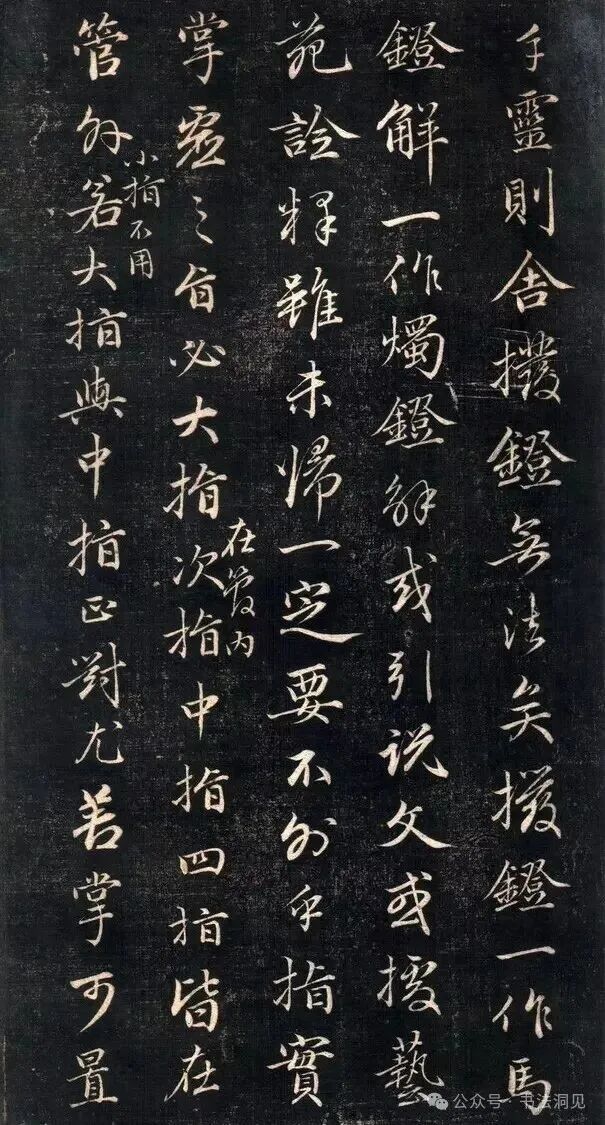 手靈則舍撥鐙無法矣撥鐙一作馬
鐙解一作燭鐙解或引說文或援藝
苑詮釋雖未歸一定要不外乎指實
掌虛之旨必大指次指中指四指皆在
在管內
管外若大指與中指正對尤若掌可置
小指不用
公众号·书法洞见